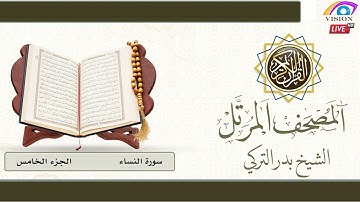 VISION
LIVE HD
القرآن الكريم
المصحف المرتل
الشيخ بدر التركي
سورة النساء
الجزء الخامس